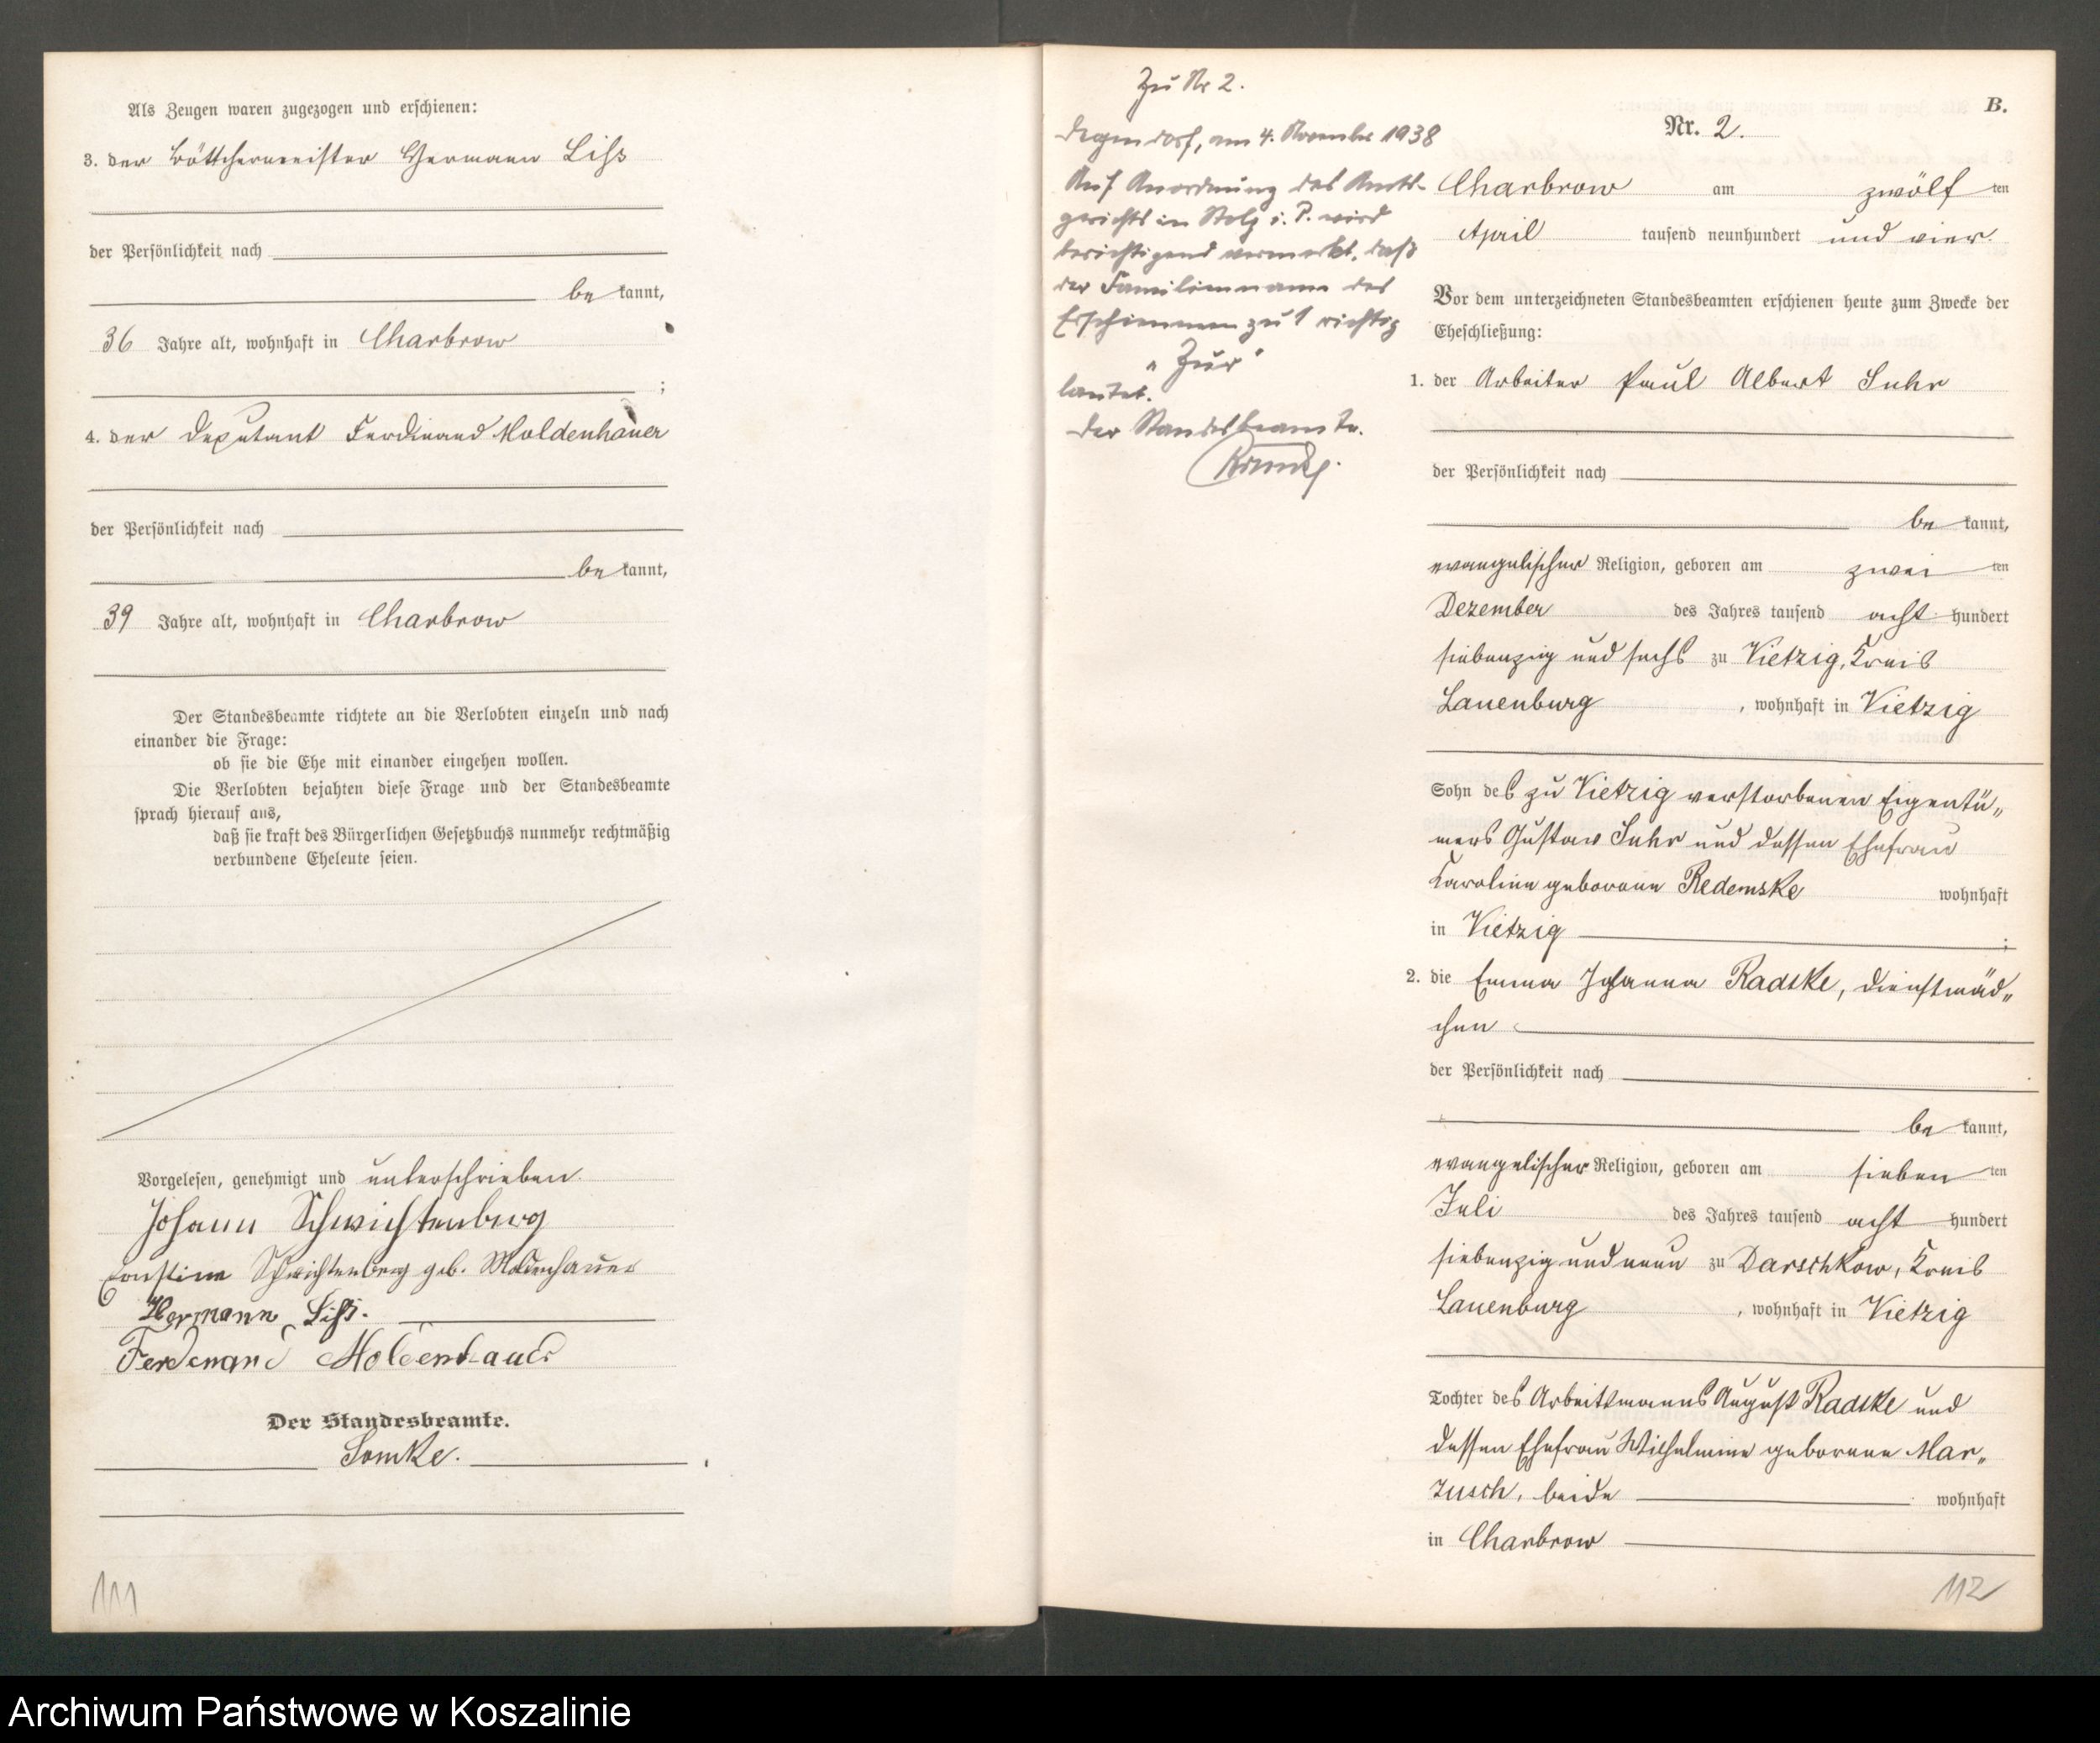 Als Zeugen waren zugezogen und erschienen:
3. der Böttchermeister Hermann Liss
der Persönlichkeit nach
be kannt,
36 Jahre alt, wohnhaft in Charbrow
;
4. der Deputant Ferdinand Moldenhauer
der Persönlichkeit nach
be kannt,
39 Jahre alt, wohnhaft in Charbrow
Der Standesbeamte richtete an die Verlobten einzeln und nach
einander die Frage:
ob sie die Ehe mit einander eingehen wollen.
Die Verlobten bejahten diese Frage und der Standesbeamte
sprach hierauf aus,
daß sie kraft des Bürgerlichen Gesetzbuchs nunmehr rechtmäßig
verbundene Eheleute seien.
Vorgelesen, genehmigt und unterschrieben.
Johann Schwichtenberg
Schwichtenberg geb. Moldenhauer
Hermann Liss.
Ferdinand Moldenhauer
Der Standesbeamte.
Lomke.
111
Zu Nr 2.
am 4. November 1938
Auf Anordnung des Amts-
gerichts in Stolp i. P. wird
berichtigend vermerkt, daß
der Familienname des
Erschienenen zu 1 richtig
"Zur"
lautet.
Der Standesbeamte.
B.
Nr. 2.
Charbrow am zwölf ten
April tausend neunhundert und vier.
Vor dem unterzeichneten Standesbeamten erschienen heute zum Zwecke der
Eheschließung:
1. der Arbeiter Paul Albert Suhr
der Persönlichkeit nach
be kannt,
evangelischer Religion, geboren am zwei ten
Dezember des Jahres tausend acht hundert
siebenzig und sechs zu Vietzig, Kreis
Lauenburg , wohnhaft in Vietzig
Sohn des zu Vietzig verstorbenen Eigentü„
mers Gustav Suhr und dessen Ehefrau
Karoline geborene Redemske wohnhaft
in Vietzig ;
2. die Emma Johanna Radtke, Dienstmäd„
chen
der Persönlichkeit nach
be kannt,
evangelischer Religion, geboren am sieben ten
Juli des Jahres tausend acht hundert
siebenzig und neun zu Darschkow, Kreis
Lauenburg , wohnhaft in Vietzig
Tochter des Arbeitsmanns August Radtke und
dessen Ehefrau Wilhelmine geborene Mar„
zusch, beide wohnhaft
in Charbrow
112
Archiwum Państwowe w Koszalinie